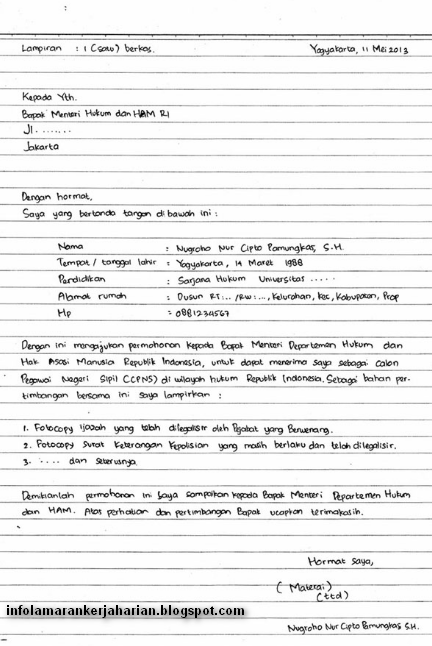 Lampiran : 1 (satu) berkas. Yogyakarta, 11 Mei 2013
Kepada Yth.
Bapak Menteri Hukum dan HAM RI
Jl. .......
Jakarta
Dengan hormat,
Saya yang bertanda tangan dibawah ini :
Nama : Nugroho Nur Cipto Pamungkas, S.H.
Tempat / tanggal lahir : Yogyakarta, 14 Maret 1988
Pendidikan : Sarjana Hukum Universitas .....
Alamat rumah : Dusun RT:... /RW:..., Kelurahan, Kec, Kabupaten, Prop
Hp : 0881234567
Dengan ini mengajukan permohonan kepada Bapak Menteri Departemen Hukum dan
Hak Asasi Manusia Republik Indonesia, untuk dapat menerima saya sebagai calon
Pegawai Negeri Sipil (CPNS) di wilayah hukum Republik Indonesia. Sebagai bahan per-
timbangan bersama ini saya lampirkan :
1. Fotocopy ijazah yang telah dilegalisir oleh Pejabat yang Berwenang.
2. Fotocopy Surat Keterangan Kepolisian yang masih berlaku dan telah dilegalisir.
3. .... dan seterusnya.
Demikianlah permohonan ini saya sampaikan kepada Bapak Menteri Departemen Hukum
dan HAM. Atas perhatian dan pertimbangan Bapak ucapkan terimakasih.
Hormat saya,
(Materai)
(ttd)
infolamarankerjaharian.blogspot.com
Nugroho Nur Cipto Pamungkas S.H.